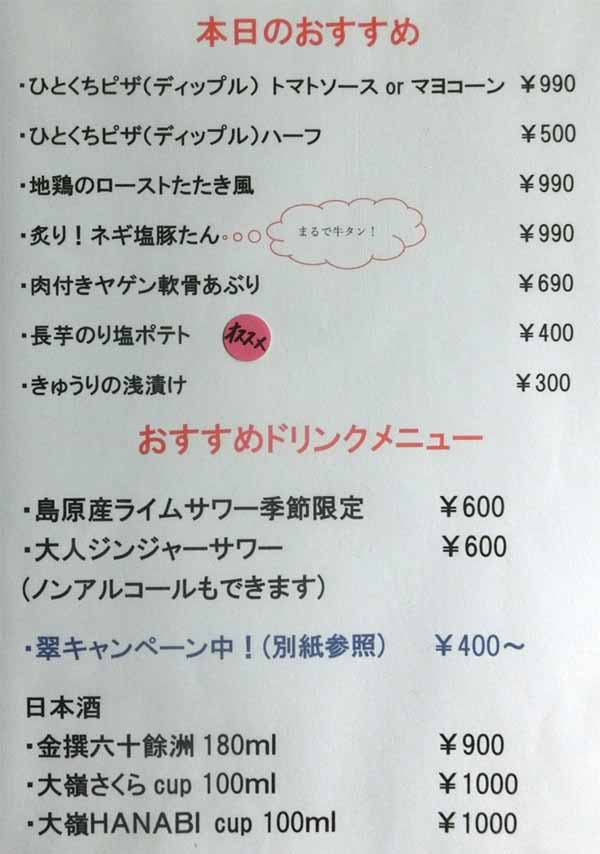 本日のおすすめ
・ひとくちピザ(ディップル) トマトソース or マヨコーン ￥990
・ひとくちピザ(ディップル)ハーフ ￥500
・地鶏のローストたたき風 ￥990
・炙り！ネギ塩豚たん まるで牛タン！ ￥990
・肉付きヤゲン軟骨あぶり ￥690
・長芋のり塩ポテト オススメ ￥400
・きゅうりの浅漬け ￥300
おすすめドリンクメニュー
・島原産ライムサワー季節限定 ￥600
・大人ジンジャーサワー ￥600
(ノンアルコールもできます)
・翠キャンペーン中！(別紙参照) ￥400～
日本酒
・金撰六十餘洲 180ml ￥900
・大嶺さくら cup 100ml ￥1000
・大嶺HANABI cup 100ml ￥1000